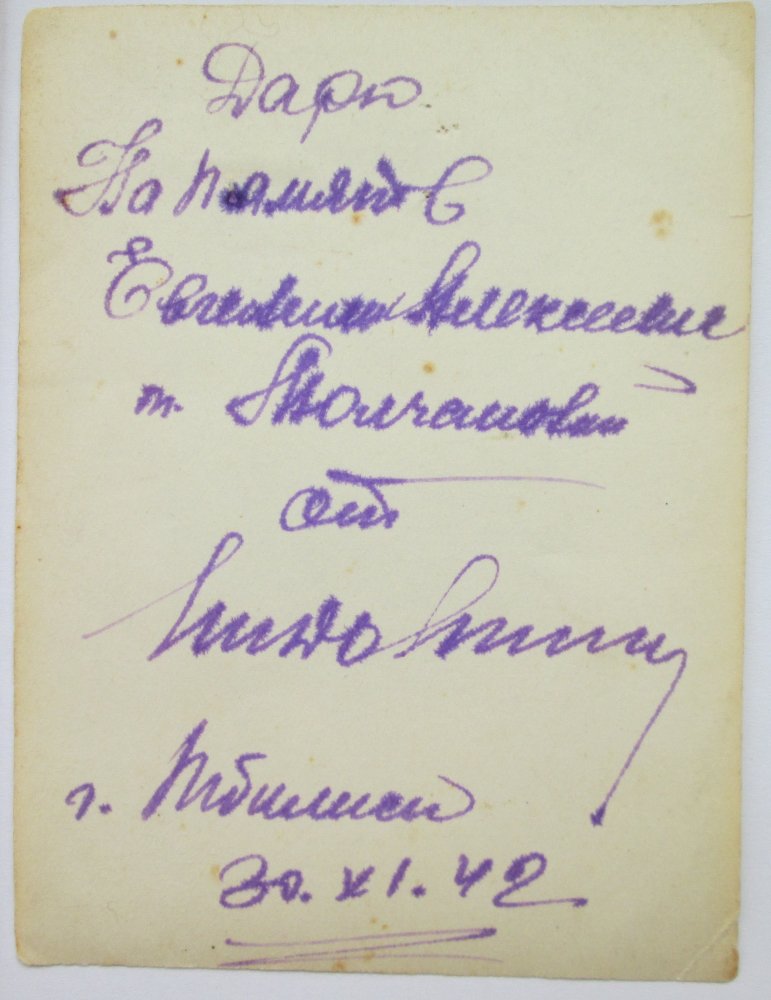 Дарю
На память
Евгению Алексеевичу
т. Молчанову
от
г. Тбилиси
30.XI.42